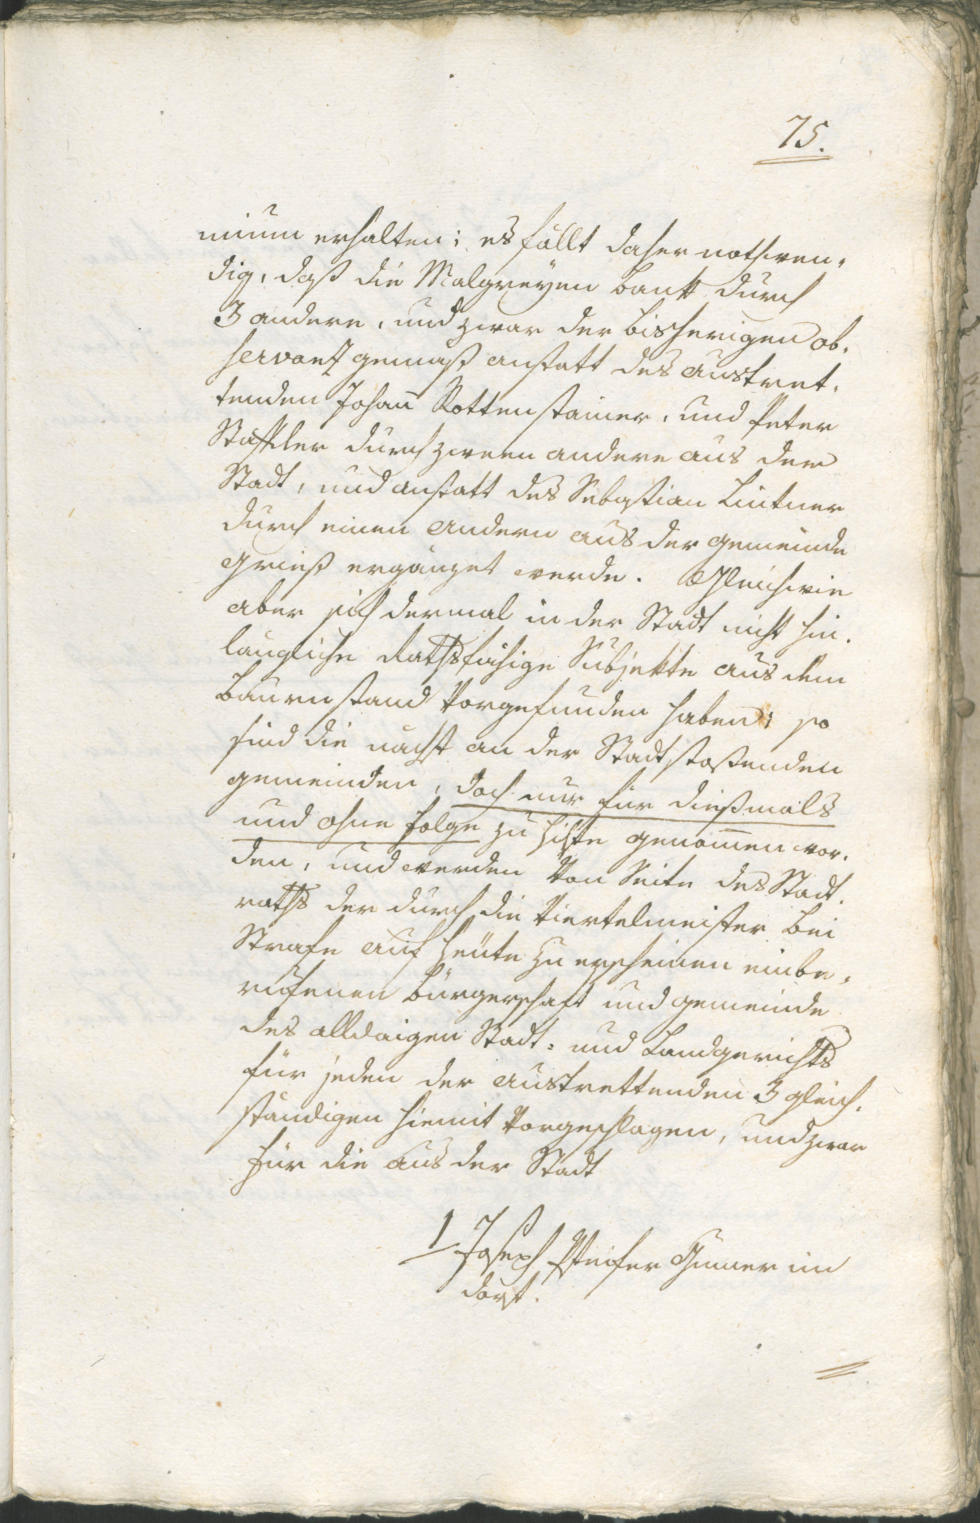 75.
nium erhalten; es fällt daher nothwen-
dig, daß die Malgreyen bank durch
3 andere, und zwar der bisherigen ob-
servanz gemäß anstatt des austret-
tenden Johañ Rottensteiner, und Peter
Staffler durch zween andere aus der
Stadt, und anstatt des Sebastian Lintner
durch einen andern aus der gemeinde
Grieß ergänzet werde. Gleichwie
aber sich dermal in der Stadt nicht hin-
längliche Rathsfähige Subjekte aus dem
Baurnstand vorgefunden haben; so
sind die nächst an der Stadt stossenden
gemeinden, doch nur für dießmals
und ohne folge zu hilfe genom̄en wor-
den, und werden von Seite des Stadt-
raths der durch die viertelmeister bei
Strafe auf heute zu erscheinen einbe-
rufenen bürgerschaft und gemeinde
des alldaigen Stadt- und Landgerichts
für jeden der austrettenden 3 gleich-
ständigen hiemit vorgeschlagen, und zwar
für die aus der Stadt
1 Joseph Pfeifer im
dorf.